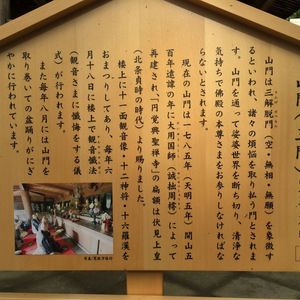 山門は三解脱門（空・無相・無願）を象徴す
るといわれ、諸々の煩悩を取り払う門とされま
す。山門を通って娑婆世界を断ち切り、清浄な
気持ちで佛殿の本尊さまをお参りしなければな
らないとされます。
現在の山門は一七八五年（天明五年）開山五
百年遠諱の年に大用国師（誠拙周樗）によって
再建され、「円覚興聖禅寺」の扁額は伏見上皇
（北条貞時の時代）より賜りました。
楼上に十一面観音像・十二神将・十六羅漢を
おまつりしてあり、毎年六
月十八日に楼上で観音懺法
（観音さまに懺悔をする儀
式）が行われます。
また毎年八月には山門を
取り巻いての盆踊りがにぎ
やかに行われています。